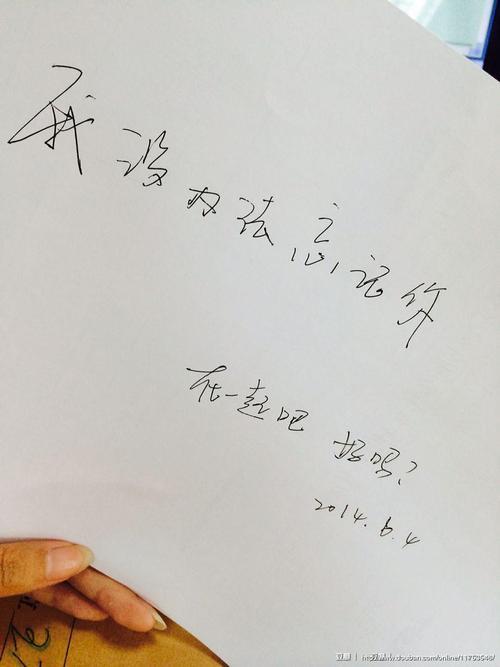 我没办法忘记你
在一起吧 好吗?
2014.6.4
豆瓣 http://www.douban.com/online/11753548/